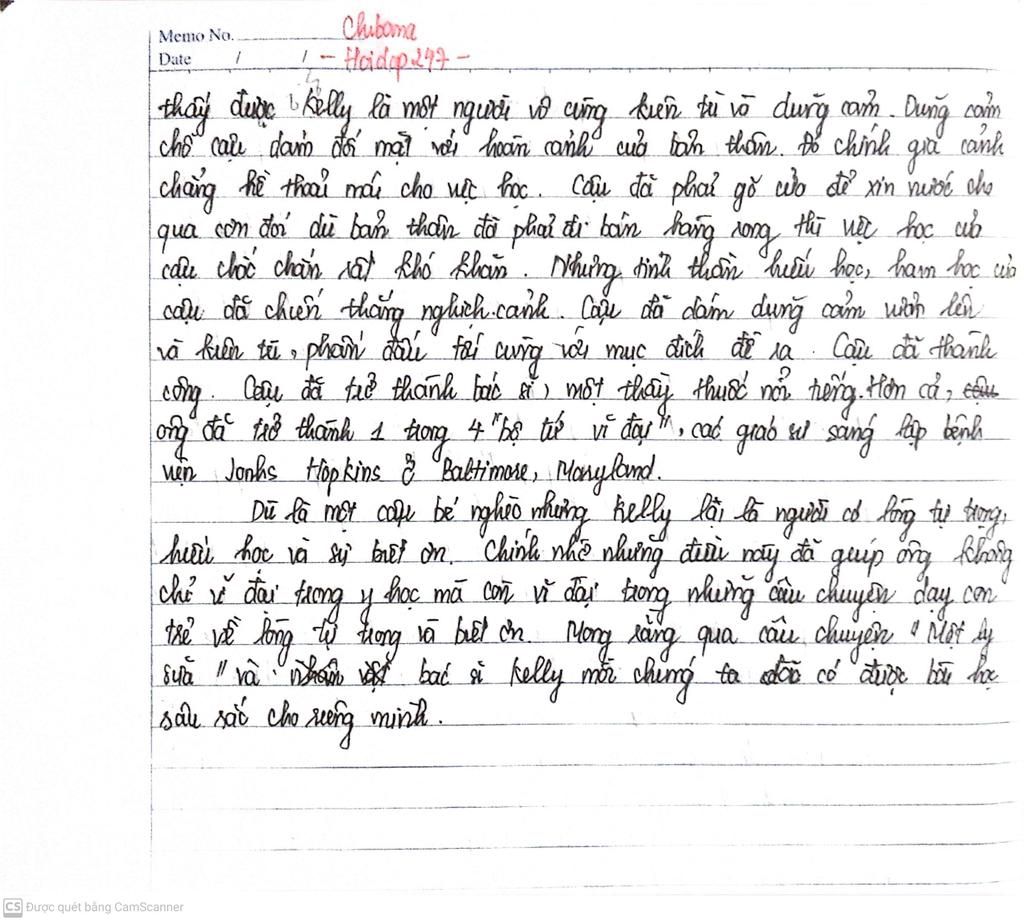 Memo No. Chiboma
Date / / - Hoidap247 -
thấy được Kelly là một người vô cùng kiên từ và dũng cảm. Dũng cảm
chỗ cậu dám đối mặt với hoàn cảnh của bản thân. Đó chính gia cảnh
chẳng hề thoải mái cho việc học. Cậu đã phải gõ cửa để xin nước cho
qua cơn đói dù bản thân đã phải đi bán hàng rong thì việc học của
cậu chắc chắn rất khó khăn. Nhưng tinh thần hiếu học, ham học của
cậu đã chiến thắng nghịch cảnh. Cậu đã dám dũng cảm vươn lên
và kiên từ, phấn đấu tới cùng với mục đích đề ra. Cậu đã thành
công. Cậu đã trở thành bác sĩ, một thầy thuốc nổi tiếng. Hơn cả, cậu
ông đã trở thành 1 trong 4 "bộ tứ vĩ đại", các giáo sư sáng lập bệnh
viện Jonhs Hopkins ở Baltimore, Maryland.
Dù là một cậu bé nghèo nhưng Kelly lại là người có lòng tự trọng,
hiếu học và sự biết ơn. Chính nhờ những điều này đã giúp ông không
chỉ vĩ đại trong y học mà còn vĩ đại trong những câu chuyện dạy con
trẻ về lòng tự trọng và biết ơn. Mong rằng qua câu chuyện "Một ly
sữa" và nhân vật bác sĩ Kelly mỗi chúng ta có được bài học
sâu sắc cho riêng mình.
CS Được quét bằng CamScanner